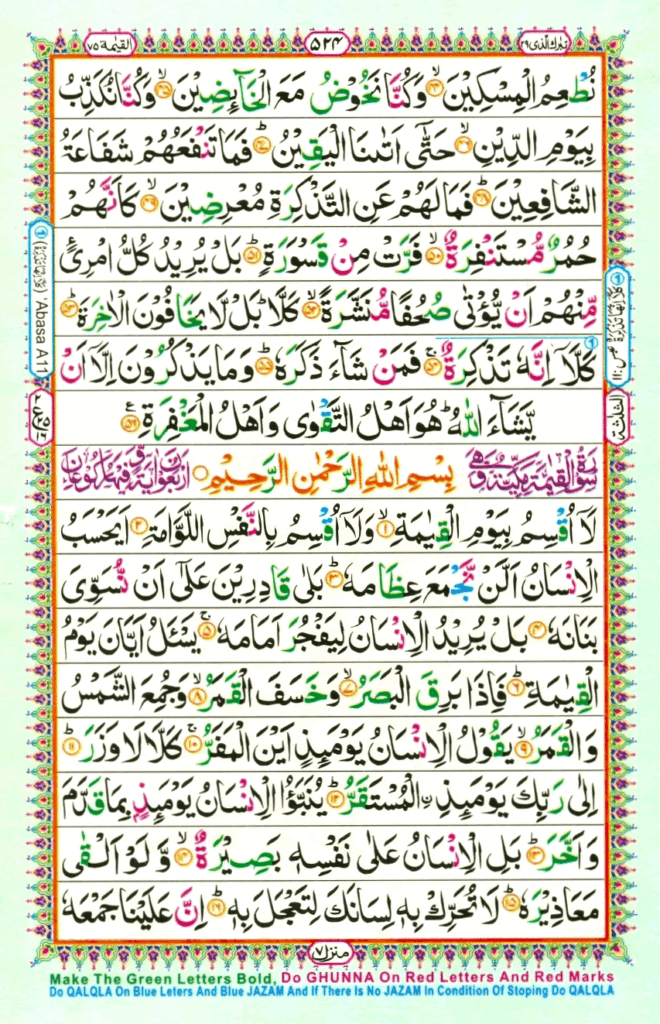 تبٰرك الذی ٢٩
٥٢٤
القيٰمة ٧٥
نُطْعِمُ الْمِسْكِيْنَ ۙ﴿٤٤﴾ وَكُنَّا نَخُوْضُ مَعَ الْخَآئِضِيْنَ ۙ﴿٤٥﴾ وَكُنَّا نُكَذِّبُ
بِيَوْمِ الدِّيْنِ ۙ﴿٤٦﴾ حَتّٰٓى اَتٰىنَا الْيَقِيْنُ ؕ﴿٤٧﴾ فَمَا تَنْفَعُهُمْ شَفَاعَةُ
الشَّافِعِيْنَ ؕ﴿٤٨﴾ فَمَا لَهُمْ عَنِ التَّذْكِرَةِ مُعْرِضِيْنَ ۙ﴿٤٩﴾ كَاَنَّهُمْ
حُمُرٌ مُّسْتَنْفِرَةٌ ۙ﴿٥٠﴾ فَرَّتْ مِنْ قَسْوَرَةٍ ؕ﴿٥١﴾ بَلْ يُرِيْدُ كُلُّ امْرِئٍ
مِّنْهُمْ اَنْ يُّؤْتٰى صُحُفًا مُّنَشَّرَةً ۙ﴿٥٢﴾ كَلَّا ؕ بَلْ لَّا يَخَافُوْنَ الْاٰخِرَةَ ؕ﴿٥٣﴾
كَلَّاۤ اِنَّهٗ تَذْكِرَةٌ ۚ﴿٥٤﴾ فَمَنْ شَآءَ ذَكَرَهٗ ؕ﴿٥٥﴾ وَمَا يَذْكُرُوْنَ اِلَّاۤ اَنْ
يَّشَآءَ اللّٰهُ ؕ هُوَ اَهْلُ التَّقْوٰى وَاَهْلُ الْمَغْفِرَةِ ﴿٥٦﴾
سُوْرَةُ الْقِيٰمَةِ مَكِّيَّةٌ وَّهِيَ بِسْمِ اللّٰهِ الرَّحْمٰنِ الرَّحِيْمِ اَرْبَعُوْنَ اٰيَةً وَّفِيْهَا رُكُوْعَانِ
لَاۤ اُقْسِمُ بِيَوْمِ الْقِيٰمَةِ ۙ﴿١﴾ وَلَاۤ اُقْسِمُ بِالنَّفْسِ اللَّوَّامَةِ ؕ﴿٢﴾ اَيَحْسَبُ
الْاِنْسَانُ اَلَّنْ نَّجْمَعَ عِظَامَهٗ ؕ﴿٣﴾ بَلٰى قَادِرِيْنَ عَلٰٓى اَنْ نُّسَوِّىَ
بَنَانَهٗ ﴿٤﴾ بَلْ يُرِيْدُ الْاِنْسَانُ لِيَفْجُرَ اَمَامَهٗ ۚ﴿٥﴾ يَسْـَٔلُ اَيَّانَ يَوْمُ
الْقِيٰمَةِ ؕ﴿٦﴾ فَاِذَا بَرِقَ الْبَصَرُ ۙ﴿٧﴾ وَخَسَفَ الْقَمَرُ ۙ﴿٨﴾ وَجُمِعَ الشَّمْسُ
وَالْقَمَرُ ۙ﴿٩﴾ يَقُوْلُ الْاِنْسَانُ يَوْمَئِذٍ اَيْنَ الْمَفَرُّ ۚ﴿١٠﴾ كَلَّا لَا وَزَرَ ؕ﴿١١﴾
اِلٰى رَبِّكَ يَوْمَئِذِ ۨالْمُسْتَقَرُّ ؕ﴿١٢﴾ يُنَبَّؤُا الْاِنْسَانُ يَوْمَئِذٍۭ بِمَا قَدَّمَ
وَاَخَّرَ ؕ﴿١٣﴾ بَلِ الْاِنْسَانُ عَلٰى نَفْسِهٖ بَصِيْرَةٌ ۙ﴿١٤﴾ وَّلَوْ اَلْقٰى
مَعَاذِيْرَهٗ ؕ﴿١٥﴾ لَا تُحَرِّكْ بِهٖ لِسَانَكَ لِتَعْجَلَ بِهٖ ؕ﴿١٦﴾ اِنَّ عَلَيْنَا جَمْعَهٗ
منزل ٧
'Abasa A 11
الثلثة
Make The Green Letters Bold, Do GHUNNA On Red Letters And Red Marks
Do QALQLA On Blue Leters And Blue JAZAM And If There Is No JAZAM In Condition Of Stoping Do QALQLA